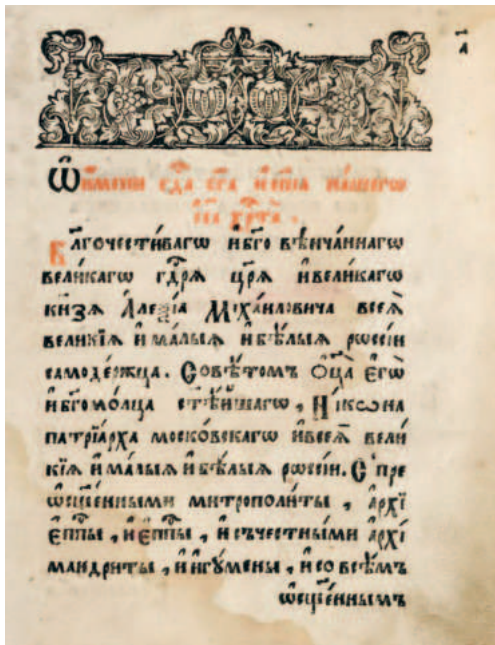 а҃
Ѿ имени гдⷭ҇а бг҃а и спⷭ҇а нашегѡ
і҆и҃са хрⷭ҇та̀.
Бл҃гочести́вагѡ и҆ бг҃о вѣнча́ннагѡ
вели́кагѡ гдⷭ҇рѧ цр҃ѧ и҆ вели́кагѡ
кн҃зѧ А҆ле́ѯі́а Мїха́иловича всеѧ̀
вели́кїѧ и҆ ма́лыѧ и҆ бѣ́лыѧ рѡссі́и
самоде́ржца. Совѣ́томъ Ѻ҆ц҃а̀ є҆гѡ̀
и҆ бг҃омо́лца ст҃ѣ́йшагѡ, Ни́кѡна
патрїа́рха моско́вскагѡ и҆ всеѧ̀ вели
кїѧ и҆ ма́лыѧ и҆ бѣ́лыѧ рѡссі́и. С пре
ѡ҆сщ҃е́нными митрополи́ты, а҆рхї
є҆пⷭ҇пы, и҆ є҆пⷭ҇пы, и҆ съчестны́ми а҆рхі
мандри́ты, и҆ и҆гꙋ́мены, и҆ со всѣ́мъ
ѡ҆сщ҃е́ннымъ